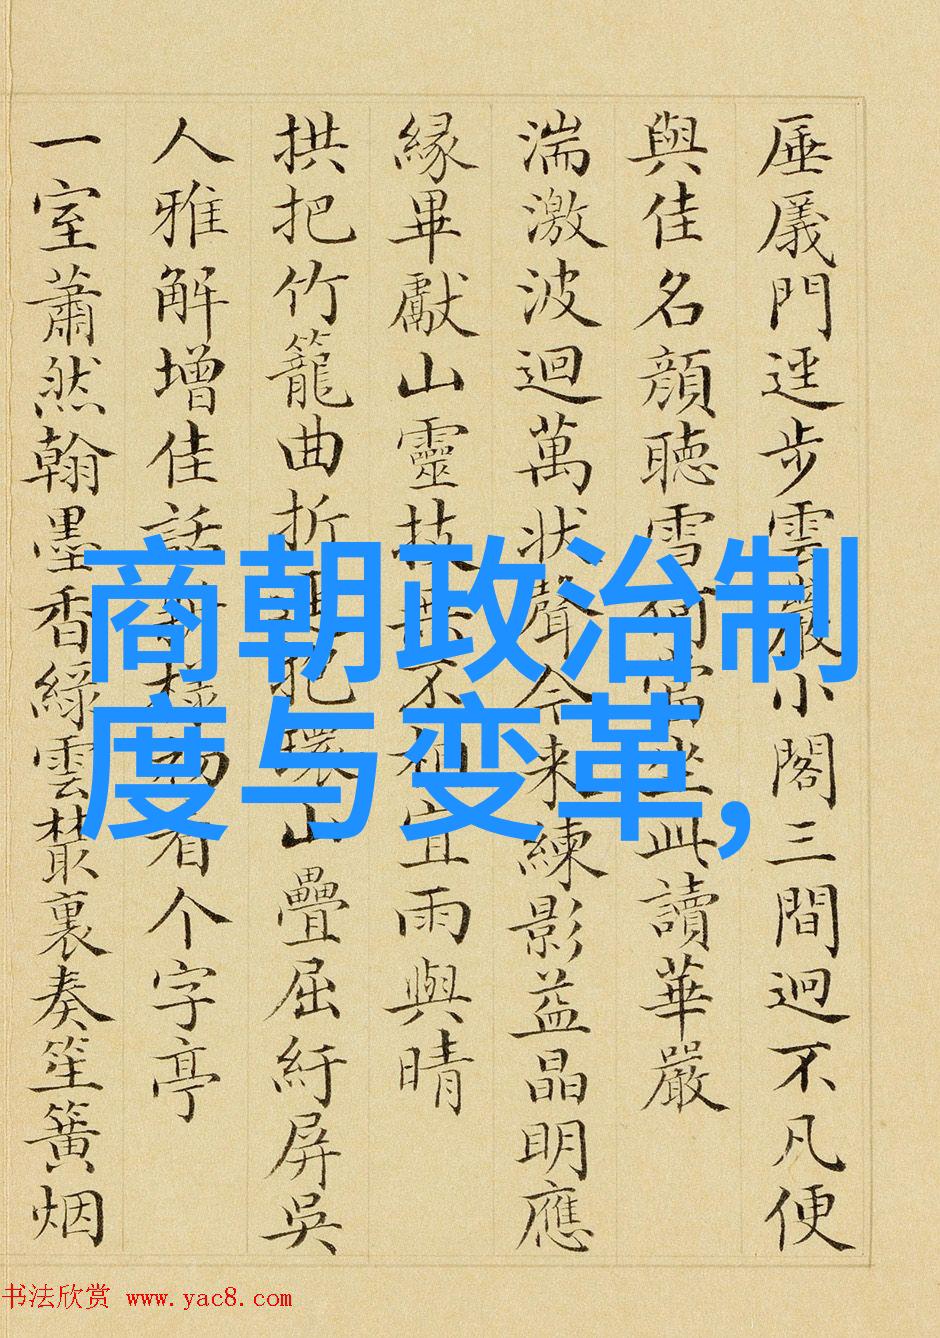 厜㕒門逕步雲巖小閣三間迥不凡便
與佳名顏聽雪何當坐此讀華嚴
湍激波迴萬状聲今来練影益晶明應
緣畢獻山靈技不相宜雨與晴
拱把竹籠曲折把環山疊屈紆屏吳
人雅解增佳話看个字亭
一室蕭然翰墨香綠雲叢裏奏笙簧烟
商朝政治制
度与变革,
书法欣赏 www.yac8.com